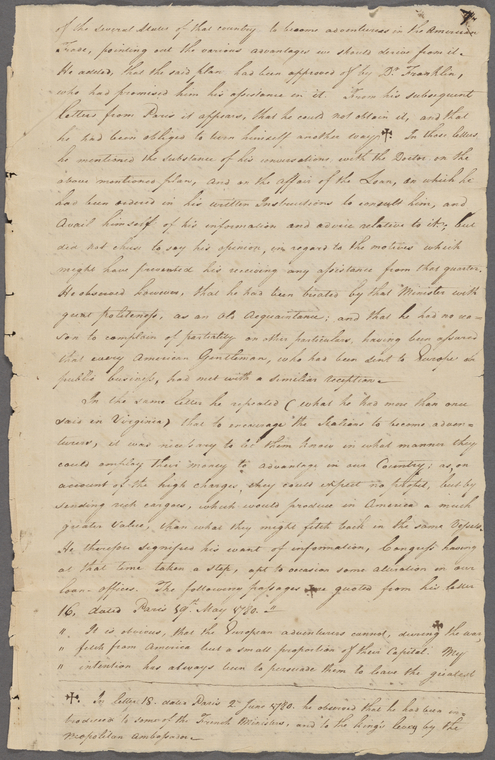 of the several States of that country to become adventurers in the American
Trade, pointing out the various advantages we should derive from it.
He added, that the said plan had been approved of by Dr. Franklin,
who had promised him his assistance in it. From his subsequent
letters from Paris it appears, that he could not obtain it, and that
he had been obliged to turn himself another way ✠. In those letters
he mentioned the substance of his conversations with the Doctor on the
above mentioned plan, and on the affair of the Loan, on which he
had been ordered in his written Instructions to consult him, and
avail himself of his information and advice relative to it; but
did not chuse to say his opinion, in regard to the motives which
might have prevented his receiving any assistance from that quarter.
He observed however, that he had been treated by that Minister with
great politeness, as an old Acquaintance; and that he had no rea-
son to complain of partiality on other particulars, having been assured
that every American Gentleman, who had been sent to Europe on
public business, had met with a similiar reception.
In the same letter he repeated (what he had more than once
said in Virginia) that to encourage the Nations to become adven-
turers, it was necessary to let them know in what manner they
could employ their money to advantage in our Country; as, on
account of the high charges, they could expect no profit, but by
sending rich cargoes, which would produce in America a much
greater value, than what they might fetch back in the same Vessels.
He therefore signifies his want of information, Congress having
at that time taken a step, apt to occasion some alteration in our
loan-offices. The following passages are quoted from his letter
16, dated Paris 19th. May 1780.
" It is obvious, that the European adventurers cannot, during the war,
" fetch from America but a small proportion of their Capital. My
" intention has always been to persuade them to leave the greatest
✠. In letter 18. dated Paris 2d. June 1780. he observed that he had been in-
troduced to some of the French Ministers, and to the King's levey by the
Neapolitan Ambassador